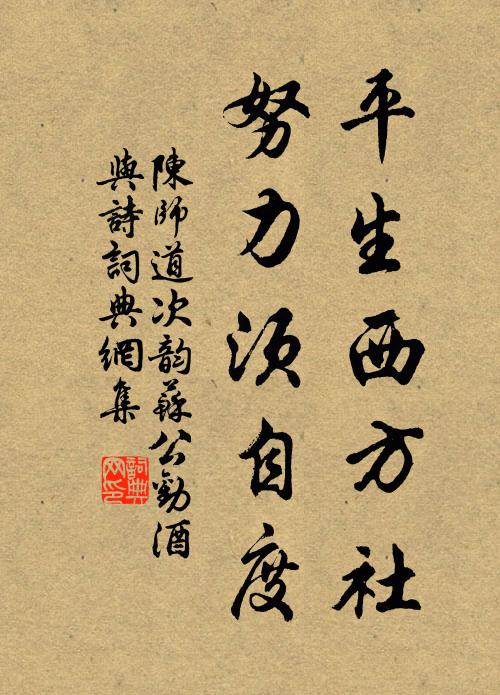 平生西方社
努力須自度
陳師道次韵蘇公勸酒
與詩詞典網集
詞典
网印